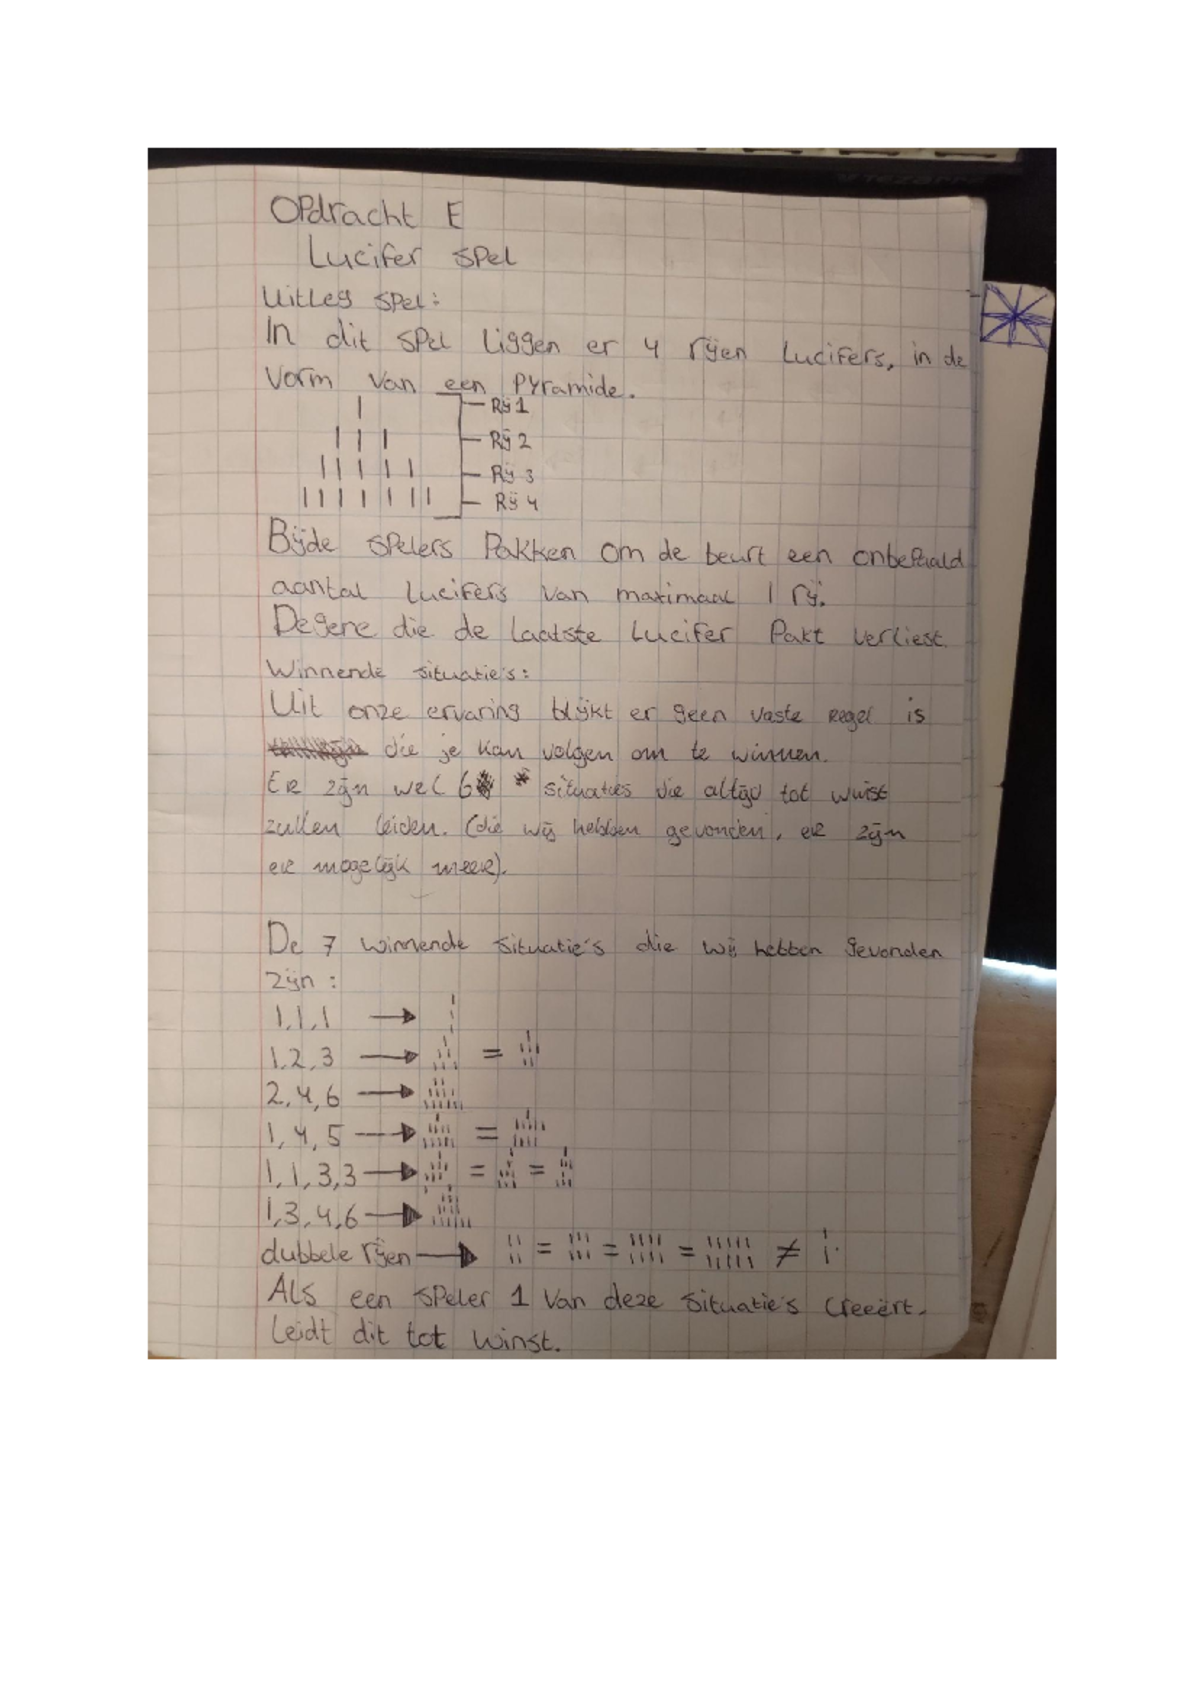 Opdracht E
Lucifer spel
Uitleg spel:
In dit spel liggen er 4 rijen Lucifers, in de
vorm van een Pyramide.
Rij 1
Rij 2
Rij 3
Rij 4
Bijde spelers Pakken om de beurt een onbepaald
aantal Lucifers van maximaal 1 rij.
Degene die de laatste Lucifer Pakt verliest.
Winnende situatie's:
Uit onze ervaring blijkt er geen vaste regel is
die je kan volgen om te winnen.
Er zijn wel 6 situaties die altijd tot winst
zullen leiden. (die wij hebben gevonden, er zijn
er mogelijk meer).
De 7 winnende situatie's die wij hebben gevonden
zijn:
1,1,1 →
1,2,3 → =
2,4,6 →
1,4,5 → =
1,1,3,3 → = =
1,3,4,6 →
dubbele rijen → = = = ≠
Als een speler 1 van deze situatie's creeërt.
Leidt dit tot winst.